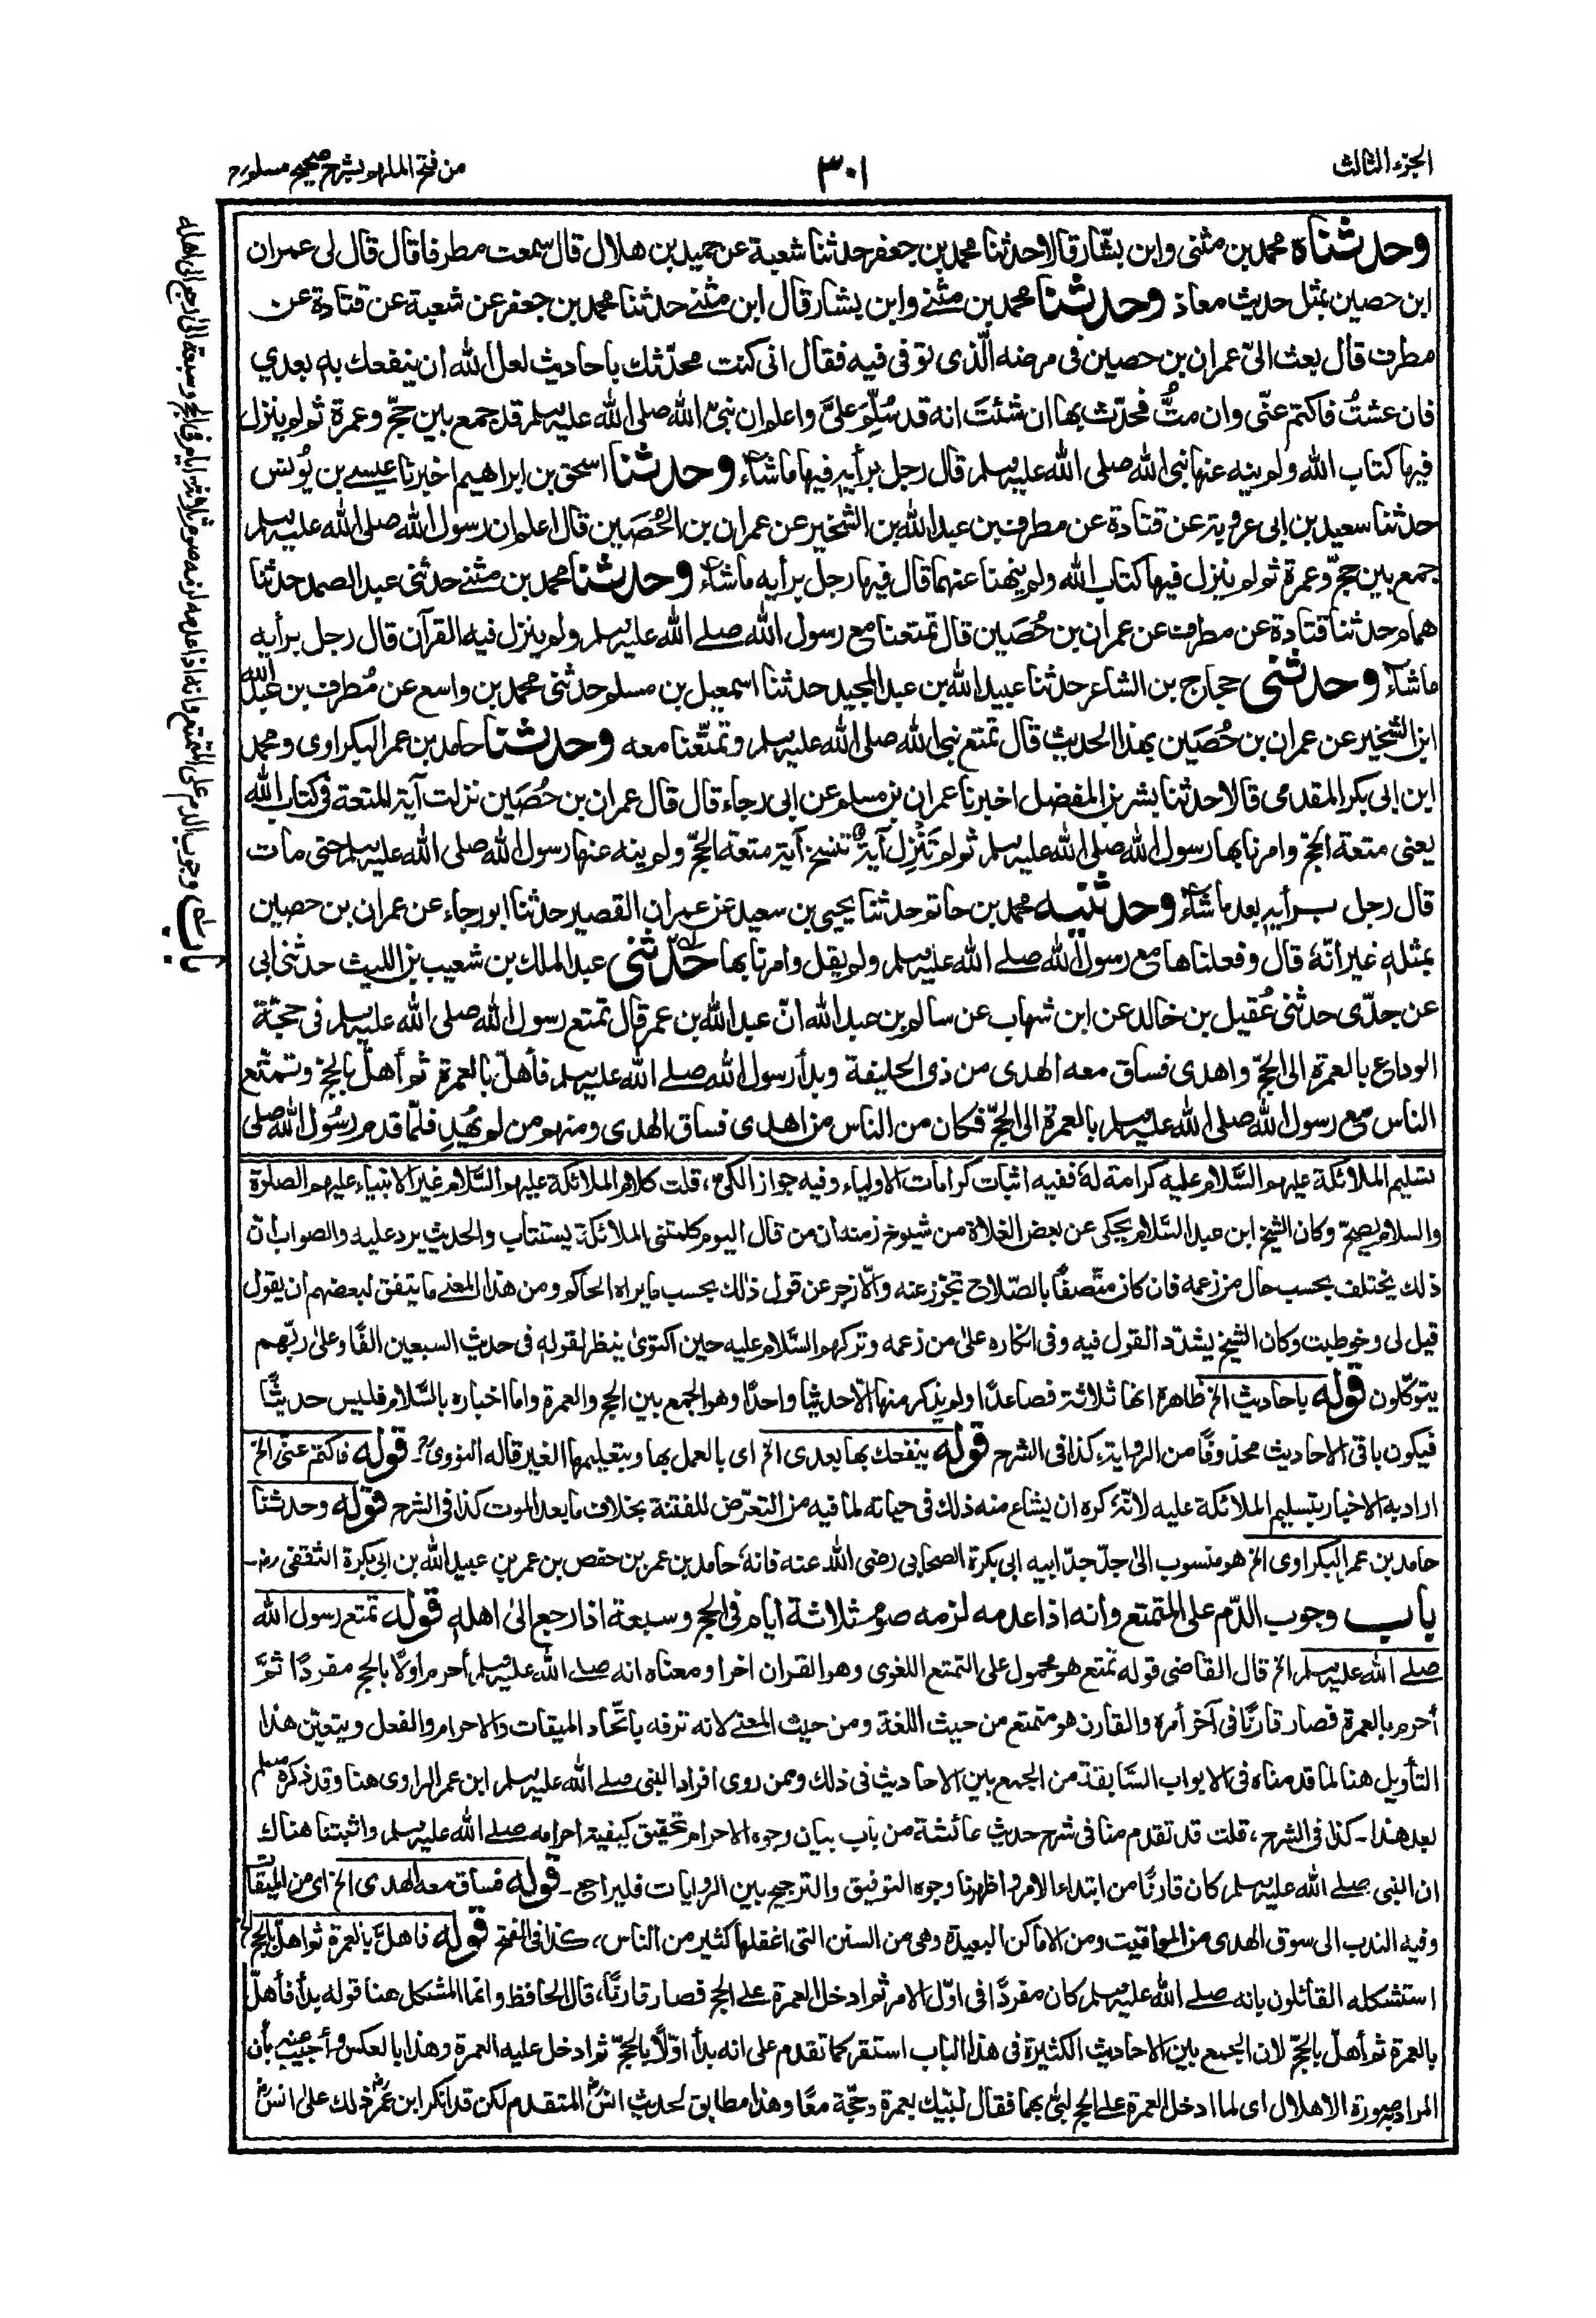 الجزء الثالث
٣٠١
من فتح الملهم بشرح صحيح مسلم
وحدثناه محمد بن مثنى وابن بشّار قالا حدثنا محمد بن جعفر حدثنا شعبة عن حميد بن هلال قال سمعت مطرفا قال قال لى عمران
ابن حصين بمثل حديث معاذ وحدثنا محمد بن مثنے وابن بشار قال ابن مثنے حدثنا محمد بن جعفر عن شعبة عن قتادة عن
مطرف قال بعث الىّ عمران بن حصين فى مرضه الّذى توفى فيه فقال انى كنت محدّثك باحاديث لعل الله ان ينفعك بها بعدي
فان عشتُ فاكتم عنّى وان متُّ فحدّث بها ان شئتَ انه قد سُلِّم علىَّ واعلم ان نبىّ الله صلى الله عليه وسلم قد جمع بين حجّ وعمرة ثم لم ينزل
فيها كتاب الله ولم ينه عنها نبى الله صلى الله عليه وسلم قال رجل برأيه فيها ماشاء وحدثنا اسحق بن ابراهيم اخبرنا عيسے بن يُونس
حدثنا سعيد بن ابى عروبة عن قتادة عن مطرف بن عبد الله بن الشخير عن عمران بن الحُصَين قال اعلم ان رسول الله صلى الله عليه وسلم
جمع بين حجّ وعمرة ثم لم ينزل فيها كتاب الله ولم ينهنا عنهما قال فيها رجل برأيه ماشاء وحدثنا محمد بن مثنے حدثنى عبد الصمد حدثنا
همام حدثنا قتادة عن مطرف عن عمران بن حُصَين قال تمتعنا مع رسول الله صلے الله عليه وسلم ولم ينزل فيه القرآن قال رجل برأيه
ماشاء وحدثنى حجاج بن الشاعر حدثنا عبيد الله بن عبد المجيد حدثنا اسمعيل بن مسلم حدثنى محمد بن واسع عن مُطرف بن عبد الله
ابن الشخير عن عمران بن حُصَين بهذا الحديث قال تمتع نبى الله صلى الله عليه وسلم وتمتّعنا معه وحدثنا حامد بن عمر البكراوى ومحمد
ابن ابى بكر المقدمى قالا حدثنا بشر بن المفضل اخبرنا عمران بن مسلم عن ابى رجاء قال قال عمران بن حُصَين نزلت آية المتعة فى كتاب الله
يعنى متعة الحجّ وامرنا بها رسول الله صلى الله عليه وسلم ثم لم تَنْزِل آية تنسخ آية متعة الحجّ ولم ينه عنها رسول الله صلى الله عليه وسلم حتى مات
قال رجل برأيه بعد ماشاء وحدثنيه محمد بن حاتم حدثنا يحيى بن سعيد عن عمران القصير حدثنا ابو رجاء عن عمران بن حصين
بمثله غير انّهٗ قال وفعلناها مع رسول الله صلے الله عليه وسلم ولم يقل وامرنا بها حدّثنى عبد الملك بن شعيب بن الليث حدثنى ابى
عن جدّى حدثنى عُقيل بن خالد عن ابن شهاب عن سالم بن عبد الله انّ عبد الله بن عمر قال تمتع رسول الله صلى الله عليه وسلم فى حجّة
الوداع بالعمرة الى الحجّ واهدى فساق معه الهدى من ذى الحليفة وبدأ رسول الله صلے الله عليه وسلم فأهلّ بالعمرة ثم أهلّ بالحجّ وتمتّع
الناس مع رسول الله صلى الله عليه وسلم بالعمرة الى الحجّ فكان من الناس من اهدى فساق الهدى ومنهم من لم يُهْدِ فلمّا قدم رسُول الله صلى
باب وجوب الدم على المتمتع وانه اذا عدمه لزمه صوم ثلاثة ايام فى الحج وسبعة اذا رجع الى اهله
بتسليم الملائكة عليهم السَّلام عليه كرامة لهٗ ففيه اثبات كرامات الاولياء وفيه جواز الكى، قلت كلام الملائكة عليهم السَّلام غير الانبياء عليهم الصلوٰة
والسلام يصحّ وكان الشيخ ابن عبد السَّلام يحكى عن بعض الغلاة من شيوخ زمنه ان من قال اليوم كلمتنى الملائكة يستتاب والحديث يرد عليه والصواب انّ
ذلك يختلف بحسب حال من زعمه فان كان متّصفًا بالصّلاح تجوّز عنه والّا زجر عن قول ذٰلك بحسب ما يراه الحاكم ومن هذا المعنے ما يتفق لبعضهم ان يقول
قيل لى وخوطبت وكان الشيخ يشدّد القول فيه وفى انكاره علىٰ من زعمه وتركهم السَّلام عليه حين اكتوىٰ ينظر لقوله فى حديث السبعين الفًا وعلىٰ ربّهم
يتوكّلون قوله باحاديث الخ ظاهرة انها ثلاثة فصاعدًا ولم يذكر منها الّا حديثا واحدًا وهو الجمع بين الحج والعمرة واما اخباره بالسَّلام فليس حديثًا
فيكون باقى الاحاديث محذوفًا من الرواية، كذا فى الشرح قوله ينفعك بها بعدى الخ اى بالعمل بها وبتعليمها الغير قاله النووىؒ۔ قوله فاكتم عنّى الخ
اراد به الاخبار بتسليم الملائكة عليه لانّهٗ كره ان يشاع منه ذلك فى حياته لما فيه من التعرّض للفتنة بخلاف ما بعد الموت كذا فى الشرح قوله وحدثنا
حامد بن عمر البكراوى الخ هو منسوب الىٰ جدّ جدّ ابيه ابى بكرة الصحابى رضى الله عنه فانهٗ حامد بن عمر بن حفص بن عمر بن عبيد الله بن ابى بكرة الثقفى رض۔
باب وجوب الدّم على المتمتع وانه اذا عدمه لزمه صوم ثلاثة ايام فى الحج وسبعة اذا رجع الىٰ اهله قوله تمتع رسول الله
صلے الله عليه وسلم الخ قال القاضى قوله تمتع هو محمول على التمتع اللغوى وهو القران اخرا ومعناه انه صلے الله عليه وسلم أحرم اولًا بالحج مفردًا ثمَّ
أحرم بالعمرة فصار قارنًا فى آخر أمره والقارن هو متمتع من حيث اللغة ومن حيث المعنے لانه ترفه باتّحاد الميقات والاحرام والفعل ويتعيّن هذا
التأويل هنا لما قدمناه فى الابواب السَّابقة من الجمع بين الاحاديث فى ذلك وممن روى افراد النبى صلے الله عليه وسلم ابن عمر الراوى هنا وقد ذكره مسلم
بعد هذا۔ كذا فى الشرح، قلت قد تقدم منا فى شرح حديث عائشة من باب بيان وجوه الاحرام تحقيق كيفية احرامه صلے الله عليه وسلم واثبتنا هناك
ان النبى صلے الله عليه وسلم كان قارنًا من ابتداء الامر واظهرنا وجوه التوفيق والترجيح بين الروايات فليراجع۔ قوله فساق معه الهدى الخ اى من الميقات
وفيه الندب الى سوق الهدى من المواقيت ومن الاماكن البعيدة وهى من السنن التى اغفلها كثير من الناس، كذا فى الفتح قوله فاهلّ بالعمرة ثم اهلّ بالحج الخ
استشكله القائلون بانه صلے الله عليه وسلم كان مفردًا فى اوّل الامر ثم ادخل العمرة علے الحج فصار قارنًا، قال الحافظ وانما المشكل هنا قوله بدأ فأهلّ
بالعمرة ثم أهلّ بالحجّ لان الجمع بين الاحاديث الكثيرة فى هذا الباب استقر كما تقدم على انه بدأ اوّلًا بالحجّ ثم ادخل عليه العمرة وهذا بالعكس وأجيب عنه بأن
المراد به صورة الاهلال اى لما ادخل العمرة علے الحج لبّى بهما فقال لبّيك بعمرة وحجّة معًا وهذا مطابق لحديث انسؓ المتقدم لكن قد انكر ابن عمرؓ ذلك علىٰ انسؓ